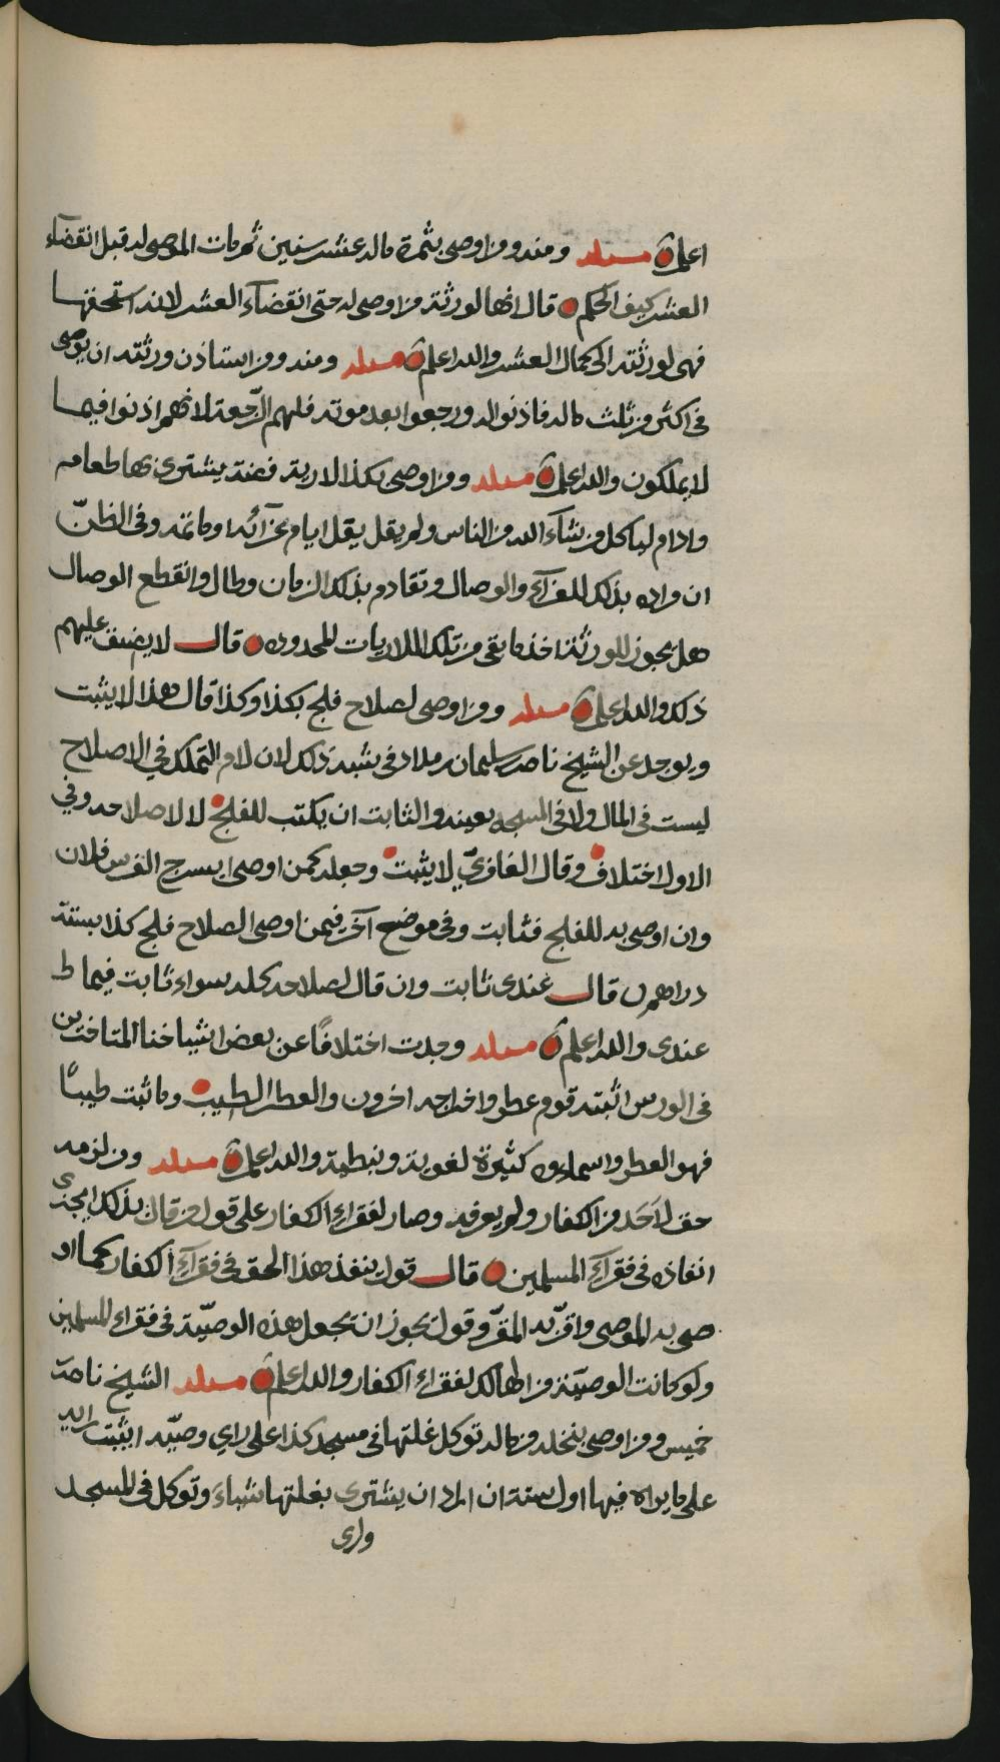 اعلم مسئلة ومنه ومن اوصى بثمرة ماله عشر سنين ثم مات الموصى له قبل انقضاء
العشر كيف الحكم قال انها لورثة من اوصى له حتى انقضاء العشر لانه استحقها
فهى لورثته الى كمال العشر والله اعلم مسئلة ومنه ومن استاذن ورثته ان يوصى
فى اكثر من ثلث ماله فاذنوا له ورجعوا بعد موته فلهم الرّجعة لانهم اذنوا فيما
لا يملكون والله اعلم مسئلة ومن اوصى بكذا لارية فضة يشترى بها طعام
وادام لياكل من شاء الله من الناس ولم يقل يقل ايام عزآئه وماتمه وفى الظنّ
ان مراده بذلك للعزآء والوصال وتقادم بذلك الزمان وطال وانقطع الوصال
هل يجوز للورثة اخذ ما بقى من تلك اللاريات للمحدود قال لا يضيق عليهم
ذلك والله اعلم مسئلة ومن اوصى لصلاح فلج بكذا وكذا قال هذا لا يثبت
ويوجد عن الشيخ ناصر بن سليمان بن مداد فى شبه ذلك لان لام التملك في الاصلاح
ليست فى المال ولا فى المسجد بعينه والثابت ان يكتب للفلج لا لاصلاحه وفي
الاول اختلاف وقال الغافريّ لا يثبت وجعله كمن اوصى بسرج الفرس فلان
وان اوصى به للفلج فثابت وفى موضع آخر فيمن اوصى لصلاح فلج كذا بستة
دراهم قال عندى ثابت وان قال لصلاحه كله سواء ثابت فيما
عندى والله اعلم مسئلة وجدت اختلافًا عن بعض اشياخنا المتاخرين
فى الورس اثبته قوم عطر واخراجه اخرون والعطر الطيب وما ثبت طيبًا
فهو العطر واسماءوه كثيرة لغوية ونبطية والله اعلم مسئلة ومن لزمه
حق لأحد من الكفار ولم يعرفه وصار لفقراء الكفار على قول من قال بذلك ايجزى
انفاذه فى فقرآء المسلمين قال قول ينفذ هذا الحق فى فقرآء الكفار كما او
صى به الموصى واقرّ به المقرّ وقول يجوز ان تجعل هذه الوصيّة فى فقراء المسلمين
ولو كانت الوصيّة من الهالك لفقراء الكفار والله اعلم مسئلة الشيخ ناصر
خميس ومن اوصى بنخلة من ماله توكل غلتها فى مسجد كذا على راي وصيّه ايثبت اليه
على ما يراه فيها اول سنة ان اراد ان يشترى بغلتها شياء وتوكل فى المسجد
وارى